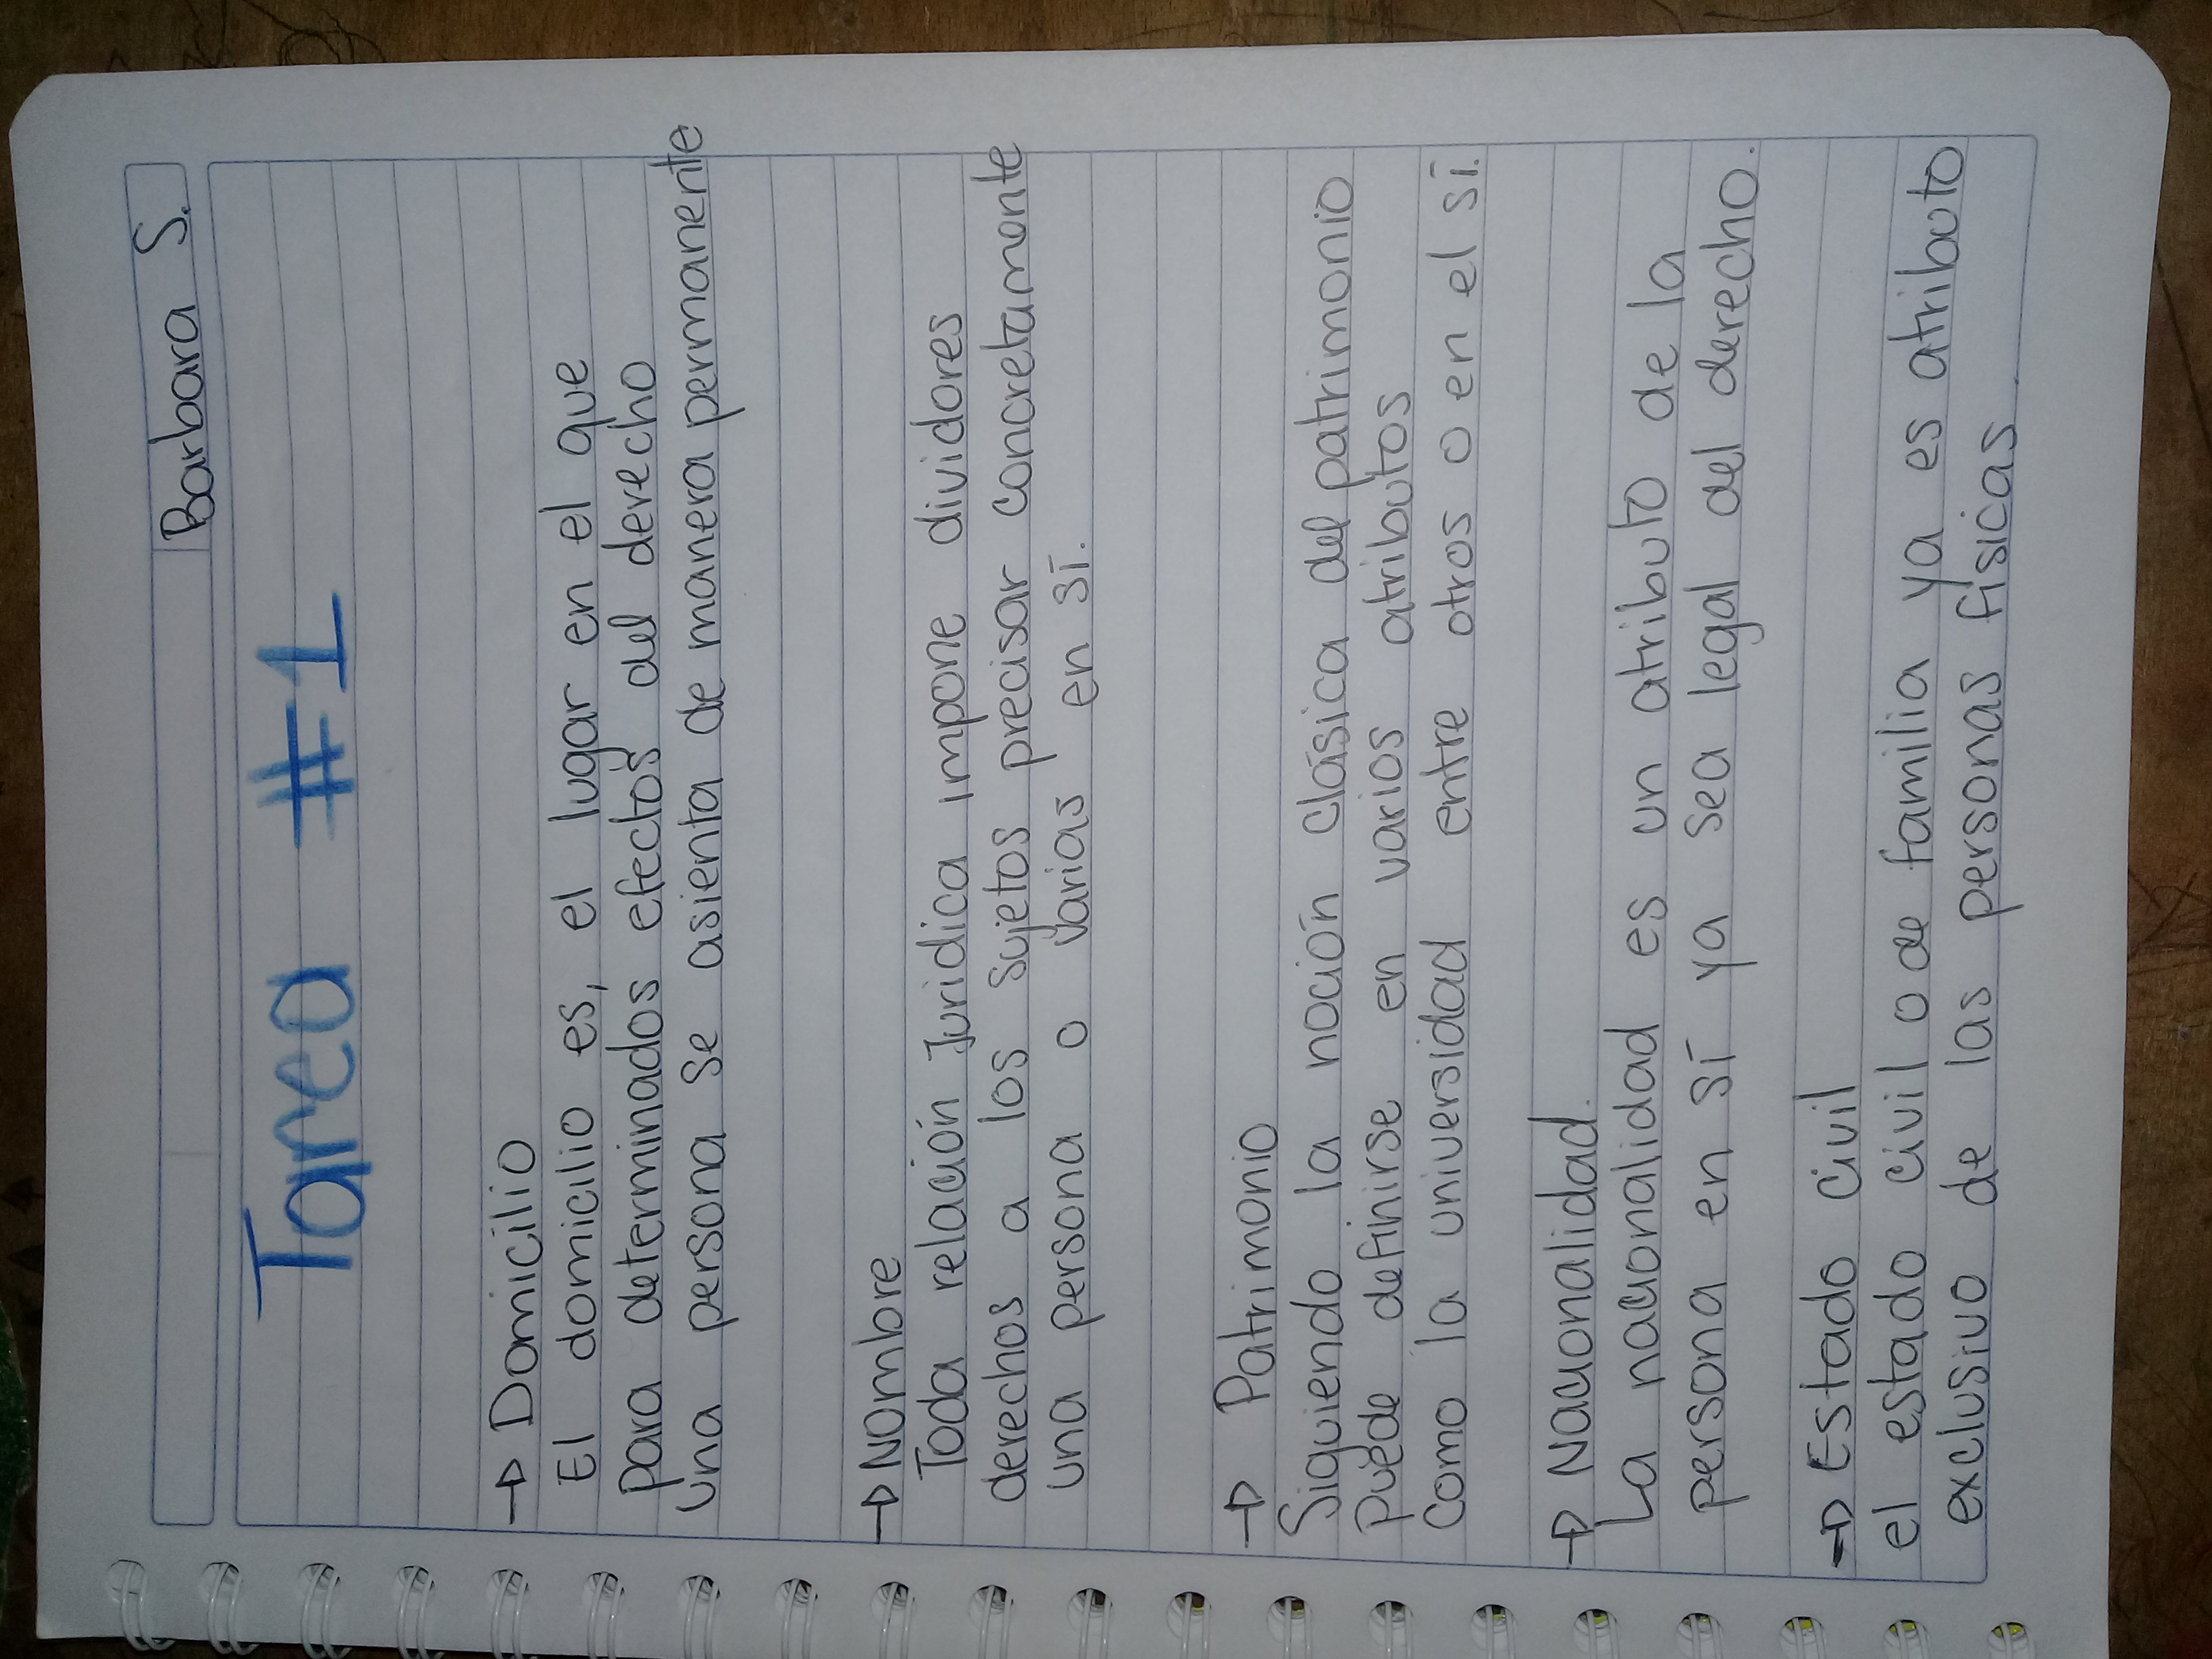 Barbara S.
Tarea #1
→ Domicilio
El domicilio es, el lugar en el que
para determinados efectos del derecho
una persona se asienta de manera permanente
→ Nombre
Toda relación Juridica impone dividores
derechos a los sujetos precisar concretamente
una persona o varias en sí.
→ Patrimonio
Siguiendo la noción clásica del patrimonio
puede definirse en varios atributos
como la universidad entre otros o en el sí.
→ Nacionalidad.
La nacionalidad es un atributo de la
persona en sí ya sea legal del derecho.
→ Estado civil
el estado civil o de familia ya es atributo
exclusivo de las personas físicas.